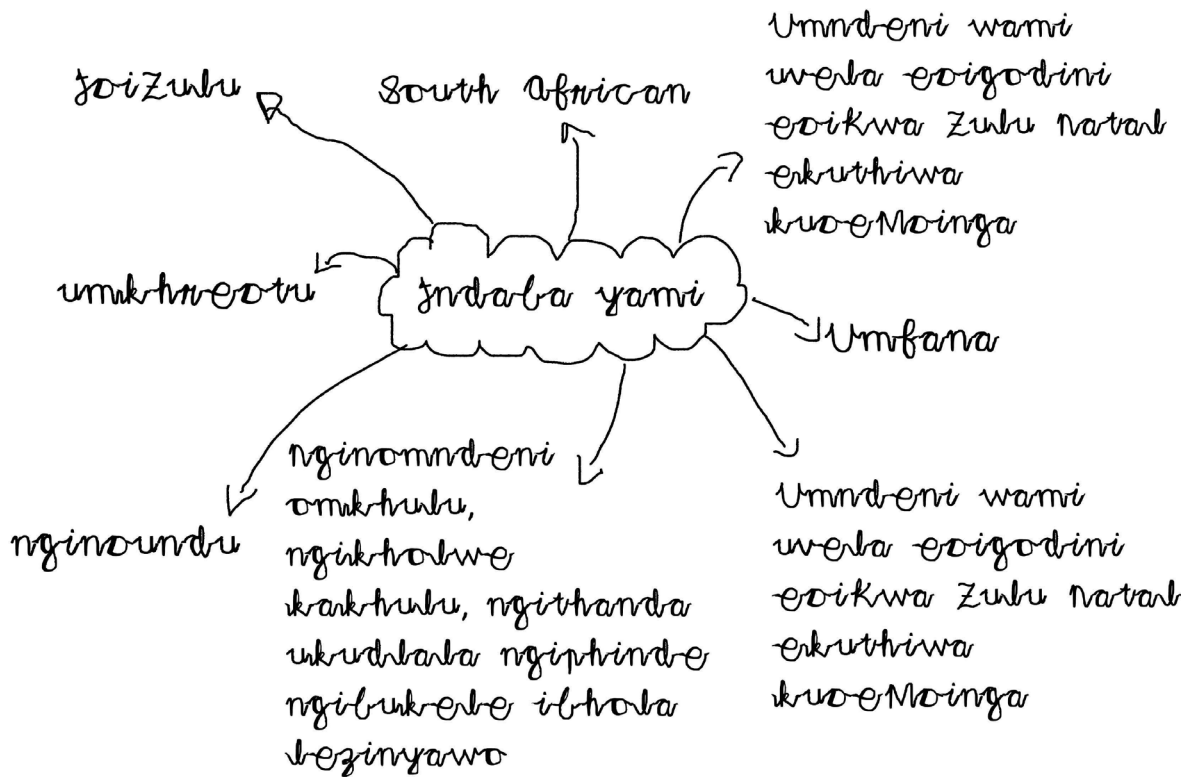 IsiZulu
South African
Umndeni wami
uvela esigodini
esiKwa Zulu Natal
ekuthiwa
kuseMsinga
umkhrestu
Indaba yami
Umfana
nginsundu
nginomndeni
omkhulu,
ngikholwe
kakhulu, ngithanda
ukudlala ngiphinde
ngibukele ibhola
lezinyawo
Umndeni wami
uvela esigodini
esiKwa Zulu Natal
ekuthiwa
kuseMsinga